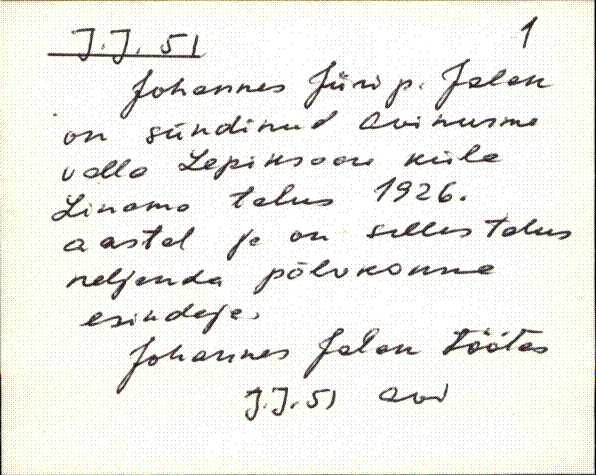 J.J. 51
1
Johannes Jüri p. Jalak
on sündinud Avinurme
valla Lepiksaare küla
Linama talus 1926.
aastal ja on selles talus
neljanda põlvkonna
esindaja.
Johannes Jalak töötas
J.J. 51 Avi